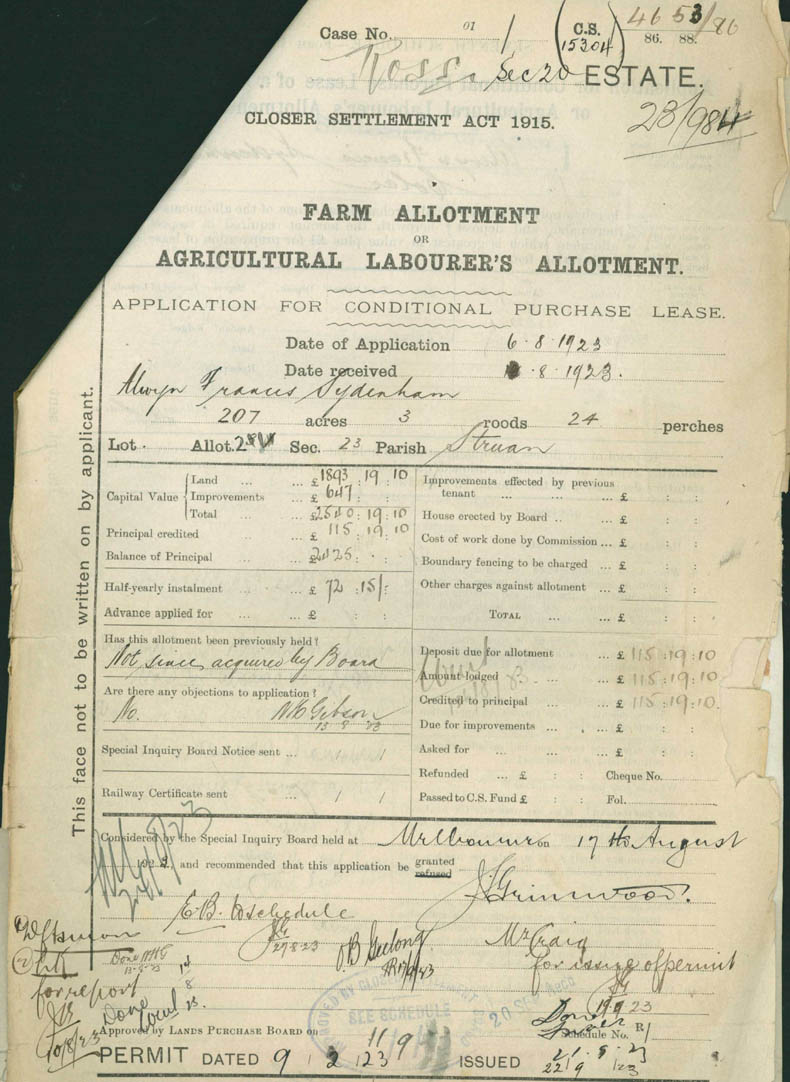 Case No. 01/
(C.S. 15304)
4653/86
86. 88.
Ross Sec 20 ESTATE.
CLOSER SETTLEMENT ACT 1915.
23/984
FARM ALLOTMENT
OR
AGRICULTURAL LABOURER'S ALLOTMENT.
APPLICATION FOR CONDITIONAL PURCHASE LEASE.
Date of Application 6.8.1923
Date received .8.1923.
Alwyn Francis Sydenham
207 acres 3 roods 24 perches
Lot. Allot. Sec. 23 Parish Struan
This face not to be written on by applicant.
Capital Value { Land ... ... £ 1893 : 19 : 10
Improvements ... £ 647
Total ... ... £ 2540 : 19 : 10
Principal credited ... £ 115 : 19 : 10
Balance of Principal ... £ 2425 : . :
Half-yearly instalment ... £ 72 : 15/-
Advance applied for ... £ : :
Has this allotment been previously held?
Not since acquired by Board
Are there any objections to application?
No. Gibson
13 8 23
Special Inquiry Board Notice sent ... / /
Railway Certificate sent ... / /
Improvements effected by previous
tenant ... ... ... £ : :
House erected by Board .. ... £ : :
Cost of work done by Commission ... £ : :
Boundary fencing to be charged ... £ : :
Other charges against allotment ... £ : :
TOTAL ... ... £ : :
Deposit due for allotment ... £ 115 : 19 : 10
Amount lodged ... £ 115 : 19 : 10
Credited to principal ... £ 115 : 19 : 10.
Due for improvements ... ... £ : :
Asked for ... ... ... £ : :
Refunded ... £ : : Cheque No.
Passed to C.S. Fund £ : : Fol.
Considered by the Special Inquiry Board held at Melbourne on 17th August
192 and recommended that this application be granted
refused
J Grimwood.
E.B. to schedule
27-8-23
O.B Geelong
Mr Craig
for issue of permit
19 9 23
for report
10/8/23
Done
Done
APPROVED BY CLOSER SETTLEMENT
SEE SCHEDULE
20 SEP 1923
Approved by LANDS PURCHASE BOARD on 11/9
Schedule No.
PERMIT DATED 9/2/23 ISSUED 22/9/23